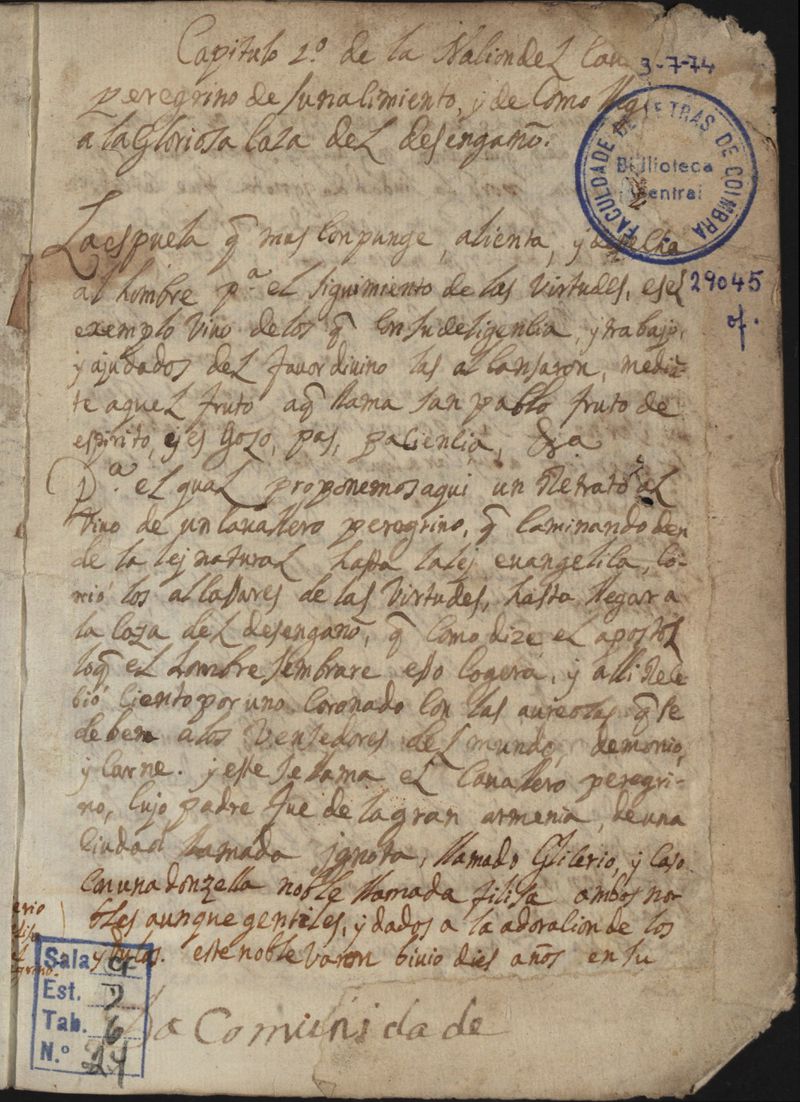 Capitulo 2.º de la Naçion del Cau
peregrino de su naçimiento, y de Como lleg
a la Gloriosa Caza del desengaño.
3-7-74
FACULDADE DE LETRAS DE COIMBRA
Biblioteca
Central
29045
of.
La espuela q̃ mas Conpunge, alienta, y
al hombre p.ª el siguimiento de las Virtudes, es el
exemplo Viuo de los q̃ Con su deligençia, y trabajo,
y ajudados del fauor diuino las alcansaron, media-
te aquel fruto aq̃ llama san pablo fruto de
espirito, q̃ es Gozo, pas, paçiençia, &a
P.ª el qual proponemos aqui un Retrato al
Viuo de un Cauallero peregrino, q̃ Caminando den
de la lej natural hasta la lej euangeliça, Co-
rrió los alcasares de las Virtudes, hasta llegar a
la Caza del desengaño, q̃ Como dize el apostol
loq̃ el hombre sembrare eso Cogera, y alli Reçe
bió Ciento por uno Coronado Con las aureolas q̃ se
deben a los Vensedores del mundo, demonio,
y Carne. y este se llama el Cauallero peregri-
no, Cujo padre fue de la gran armenia, de una
Çiudad llamada jgnota, llamado Gliçerio, y Caso
Con una donzella noble llamada filisa ambos no-
bles aunque gentiles, y dados a la adoraçion de los
ydolos. este noble varon biuio dies años en su
Sala 9
Est. 7
Tab. 6
N.º 24
Da Comunidade